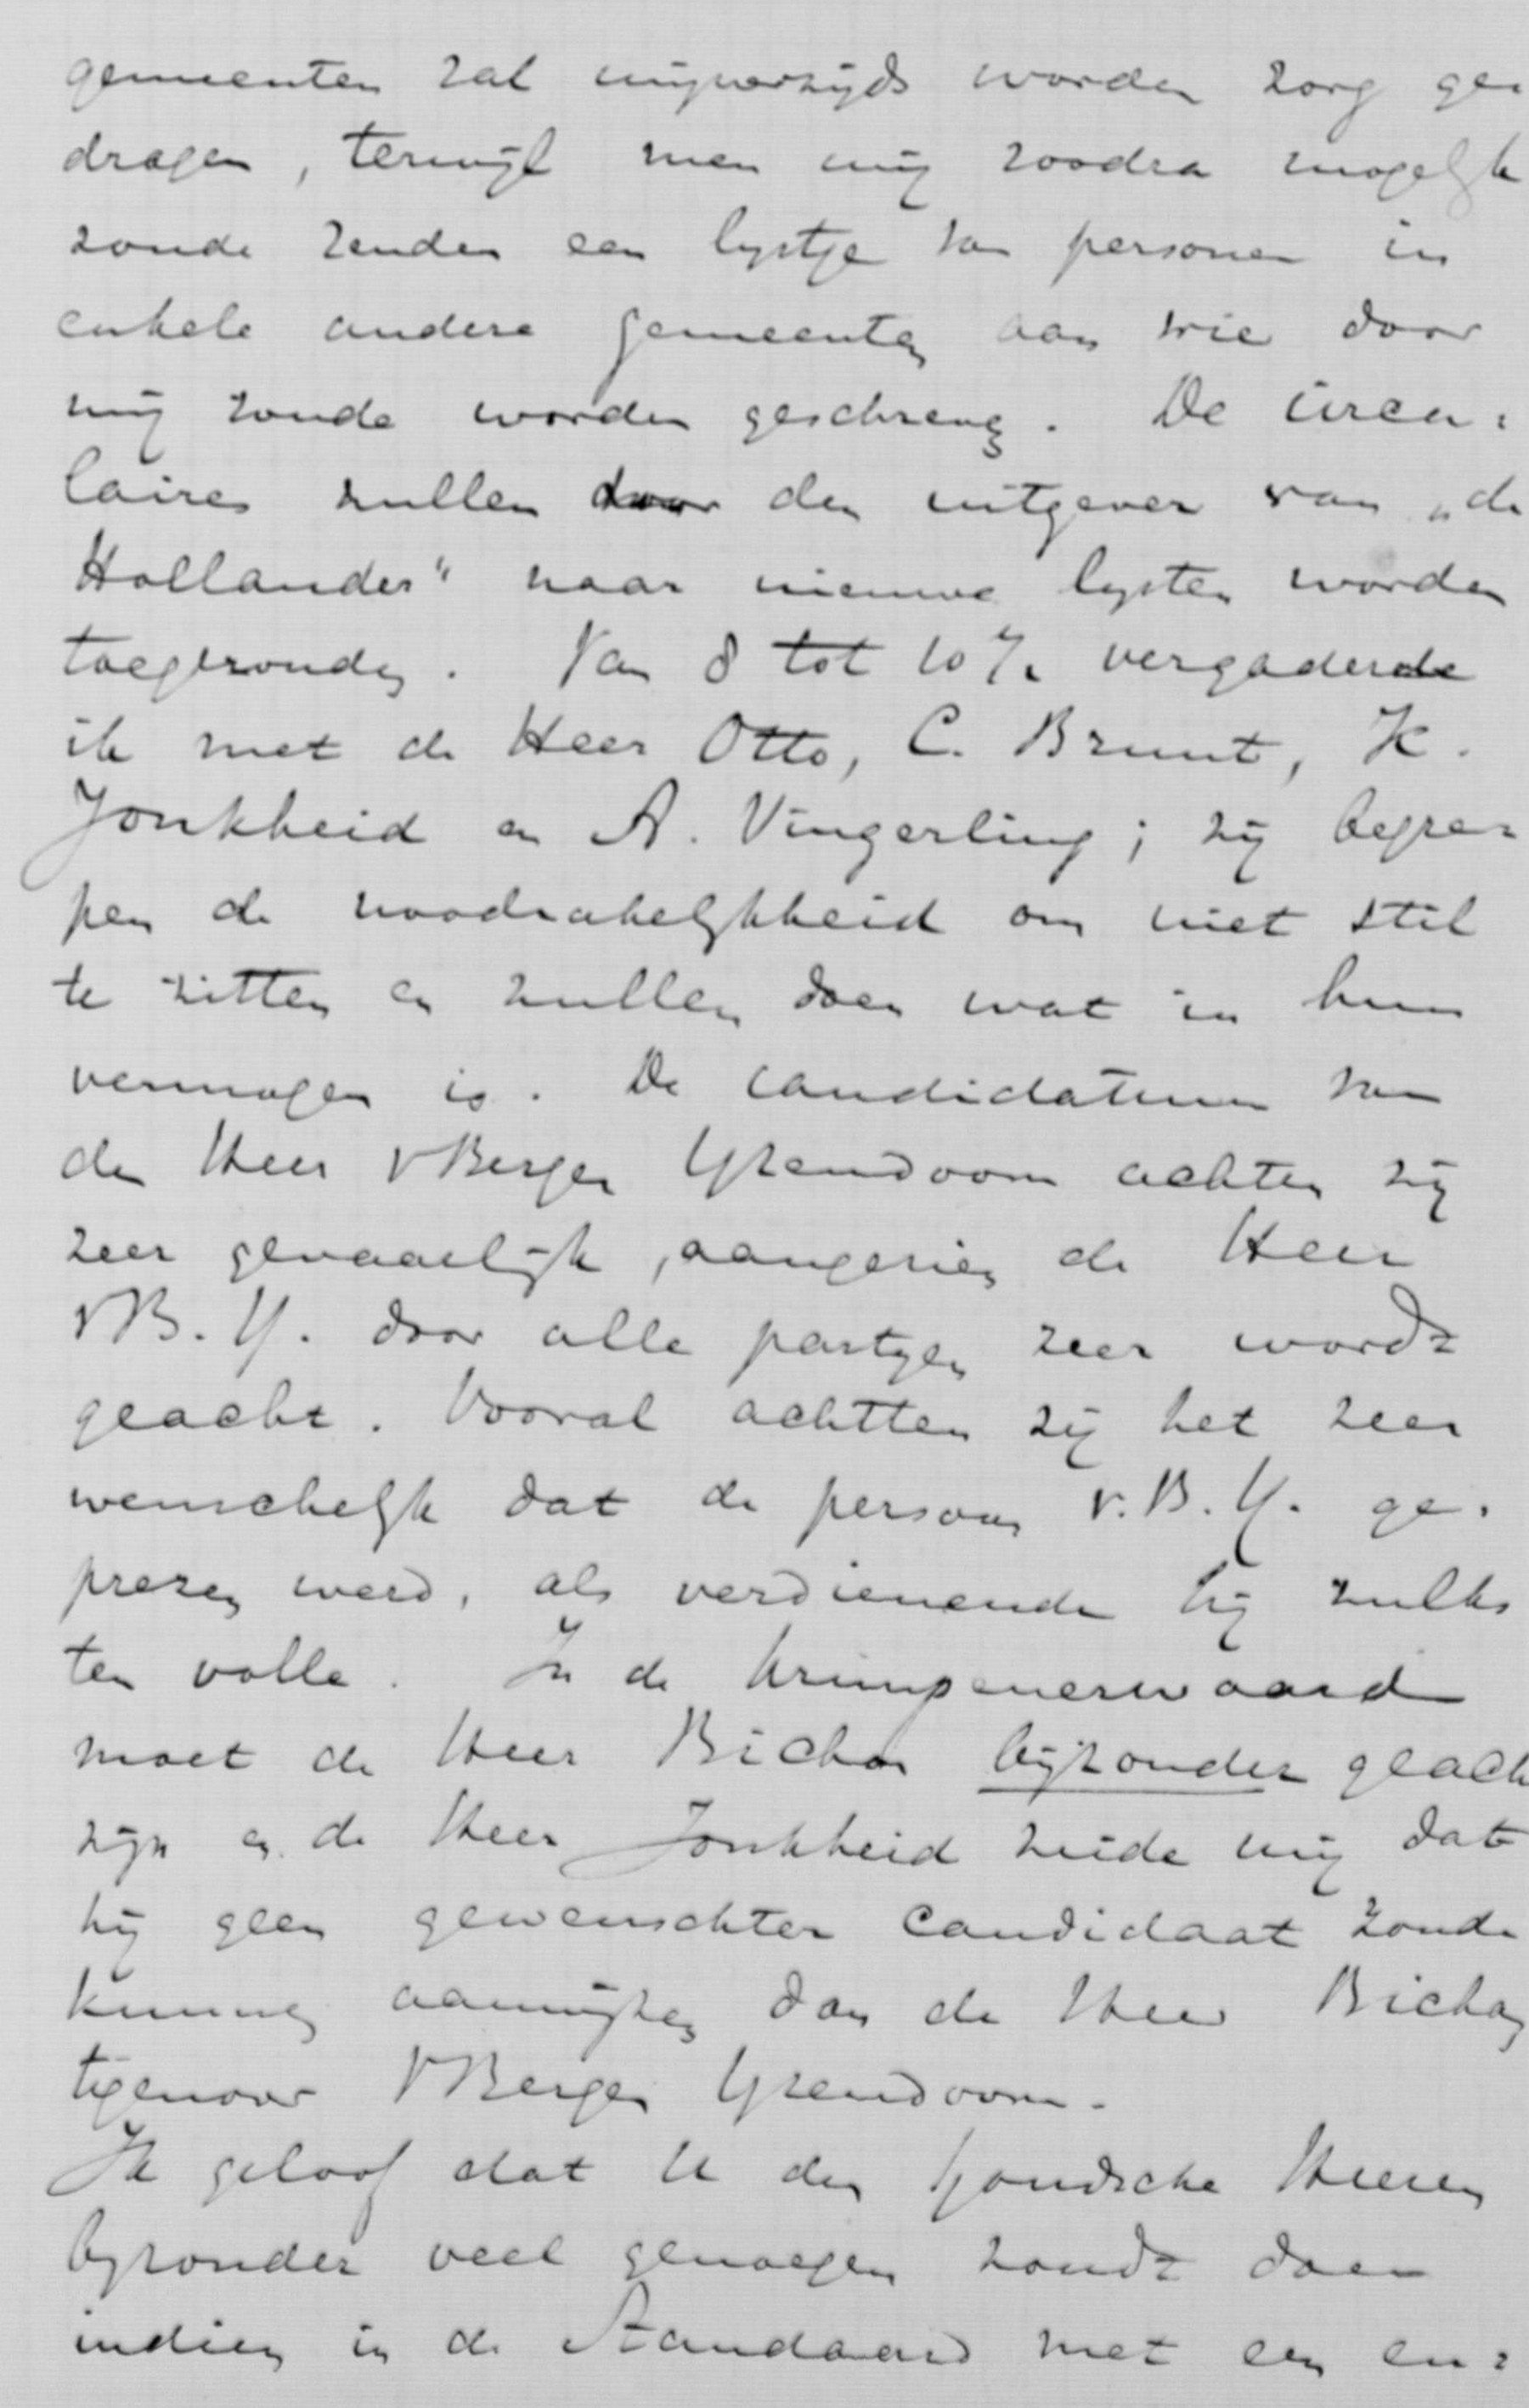 gemeenten zal mijnerzijds worden zorg ge=
dragen, terwijl men mij zoodra mogelijk
zoude zenden een lijstje van personen in
enkele andere gemeenten aan wie door
mij zoude worden geschreven. De circu=
laires zullen door den uitgever van „de
Hollander" naar nieuwe lijsten worden
toegezonden. Van 8 tot 10½ vergaderde
ik met de Heer Otto, C. Brunt, K.
Jonkheid en A. Vingerling; zij begre=
pen de noodzakelijkheid om niet stil
te zitten en zullen doen wat in hun
vermogen is. De candidatuur van
den Heer v Bergen IJzendoorn achten zij
zeer gevaarlijk, aangezien de Heer
v B. IJ. door alle partijen zeer wordt
geacht. Vooral achtten zij het zeer
wenschelijk dat de persoon v. B. IJ. ge=
prezen werd, als verdienende hij zulks
ten volle. In de Krimpenerwaard
moet de Heer Bichon bijzonder geacht
zijn en de Heer Jonkheid zeide mij dat
hij geen gewenschter candidaat zoude
kunnen aanwijzen dan de Heer Bichon
tegenover v Bergen IJzendoorn.
Ik geloof dat U den Goudsche Heeren
bijzonder veel genoegen zoudt doen
indien in de Standaard met een en=